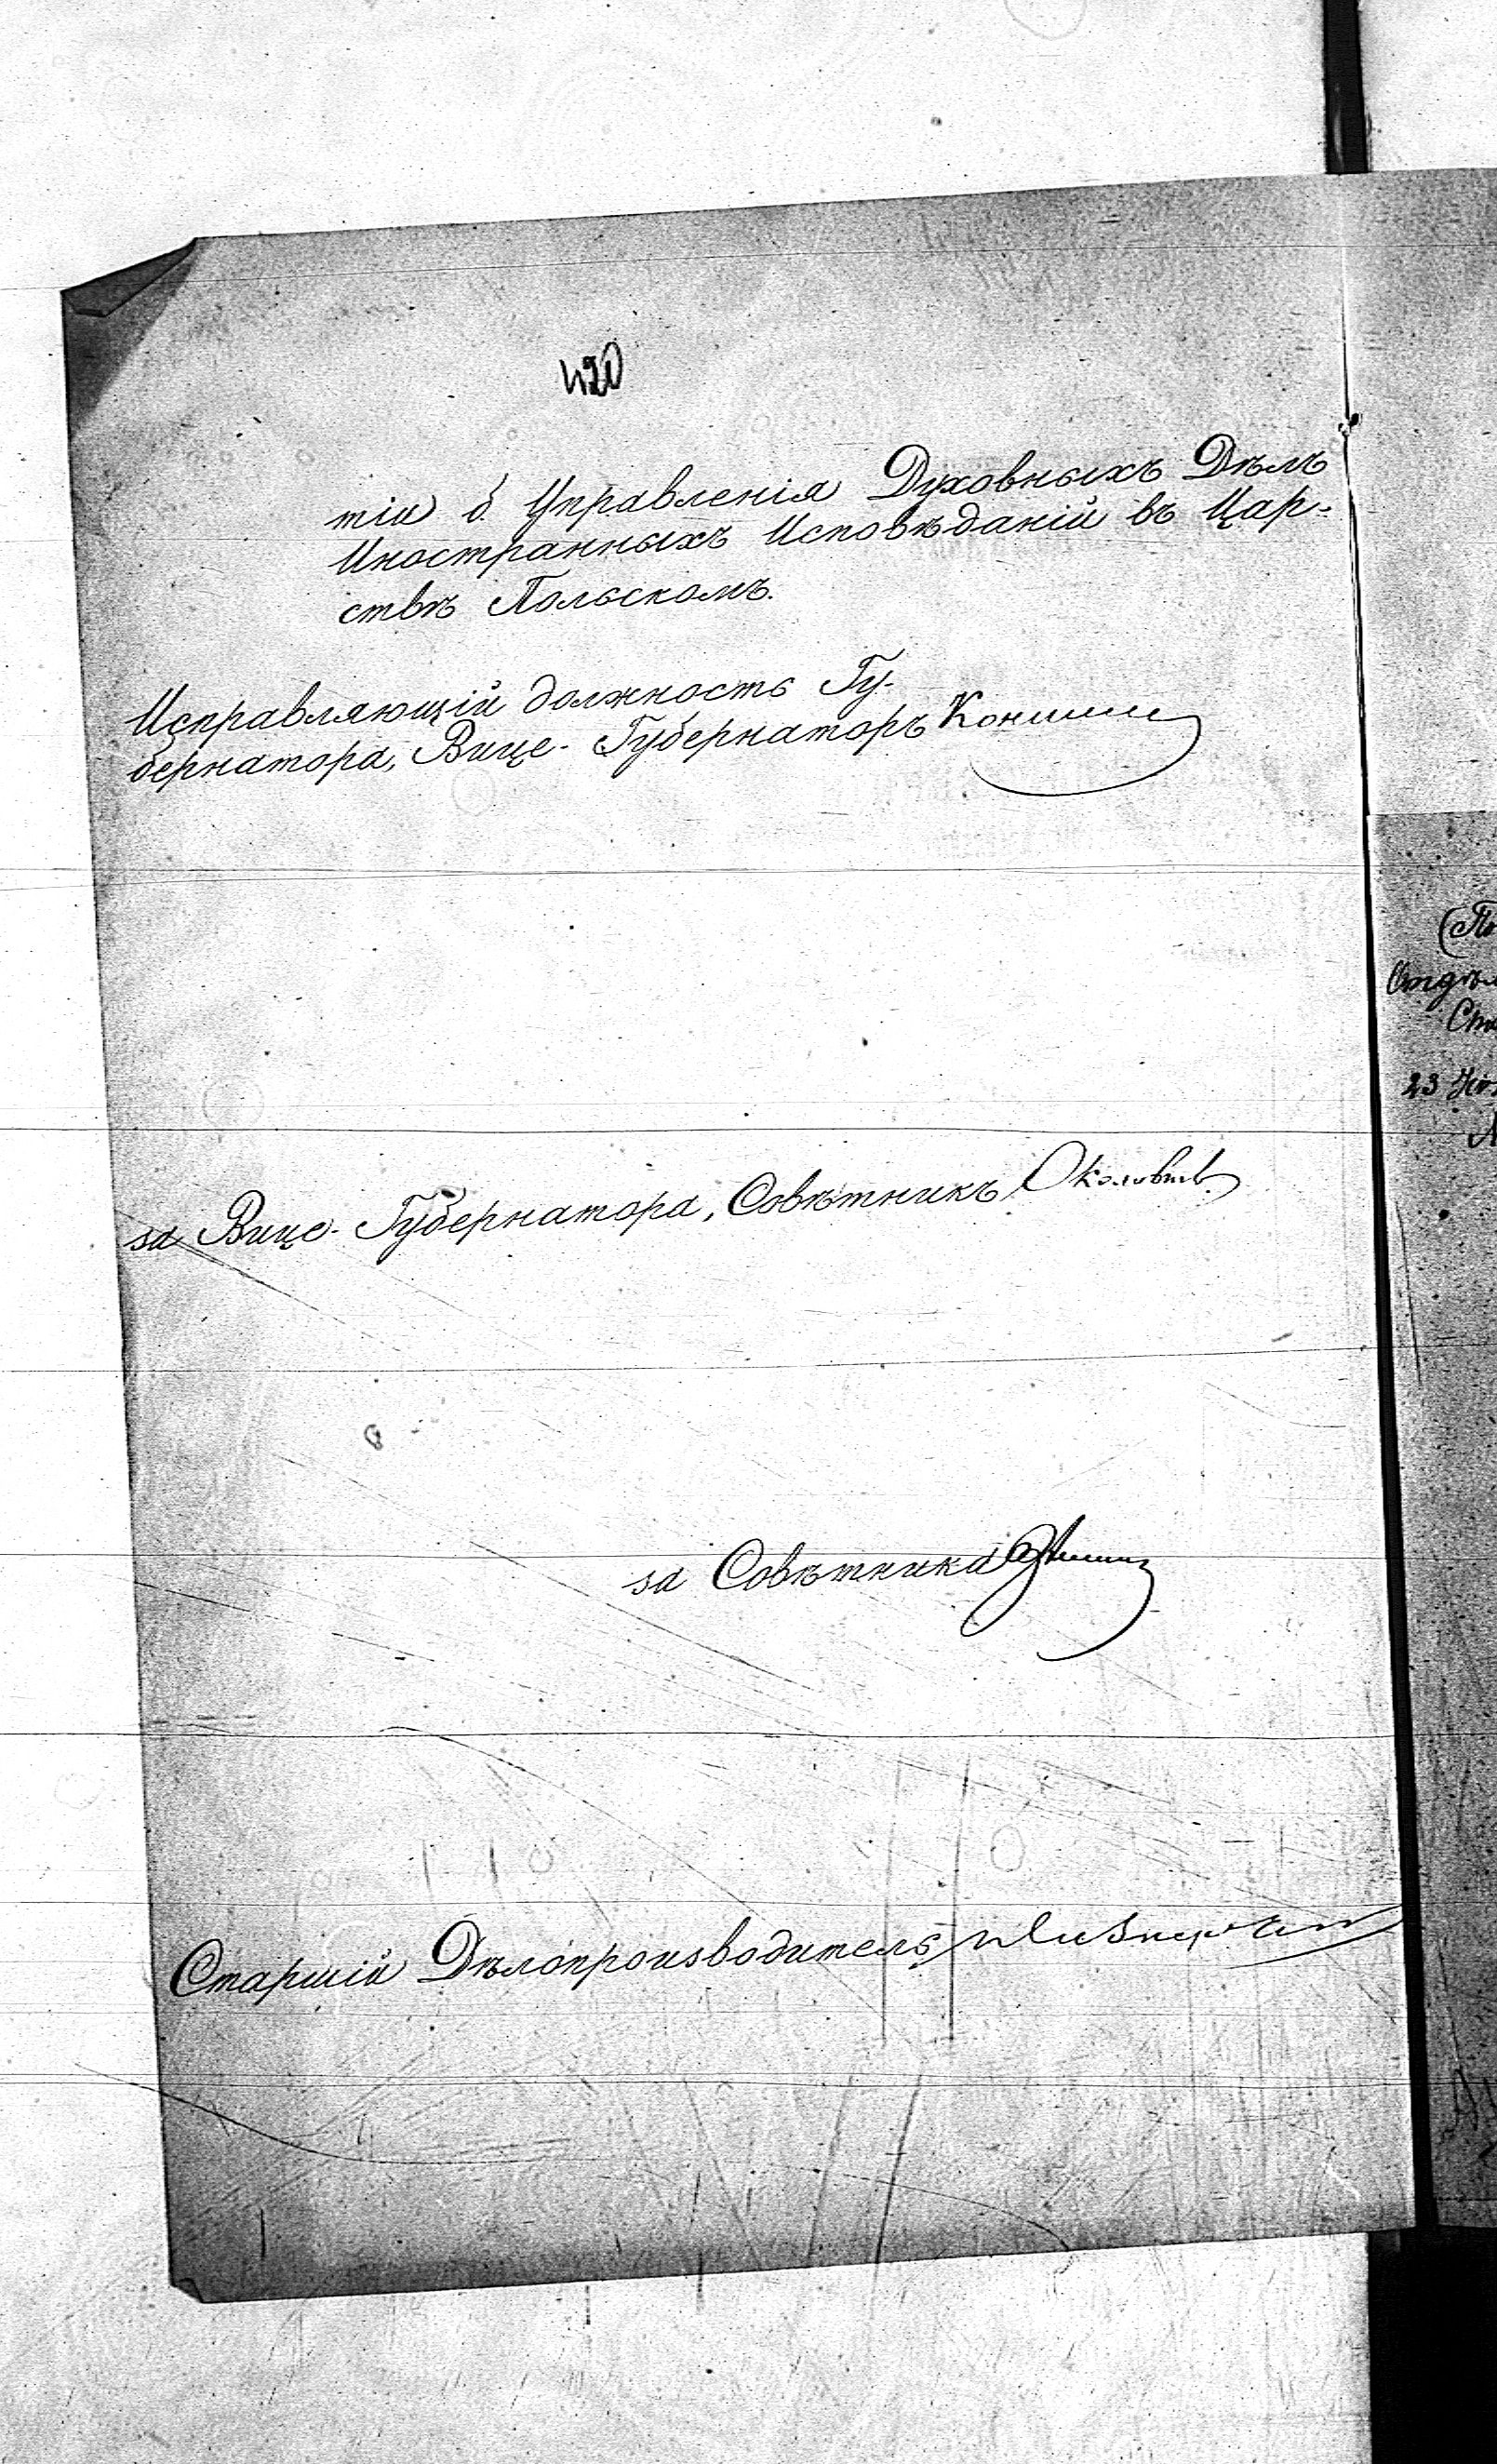 420
тіи б. Управленія Духовныхъ Дѣлъ
Иностранныхъ Исповѣданій въ Цар-
ствѣ Польскомъ.
Исправляющій должность Гу-
бернатора, Вице-Губернаторъ
за Вице-Губернатора, Совѣтникъ
за Совѣтника
Старшій Дѣлопроизводитель
23